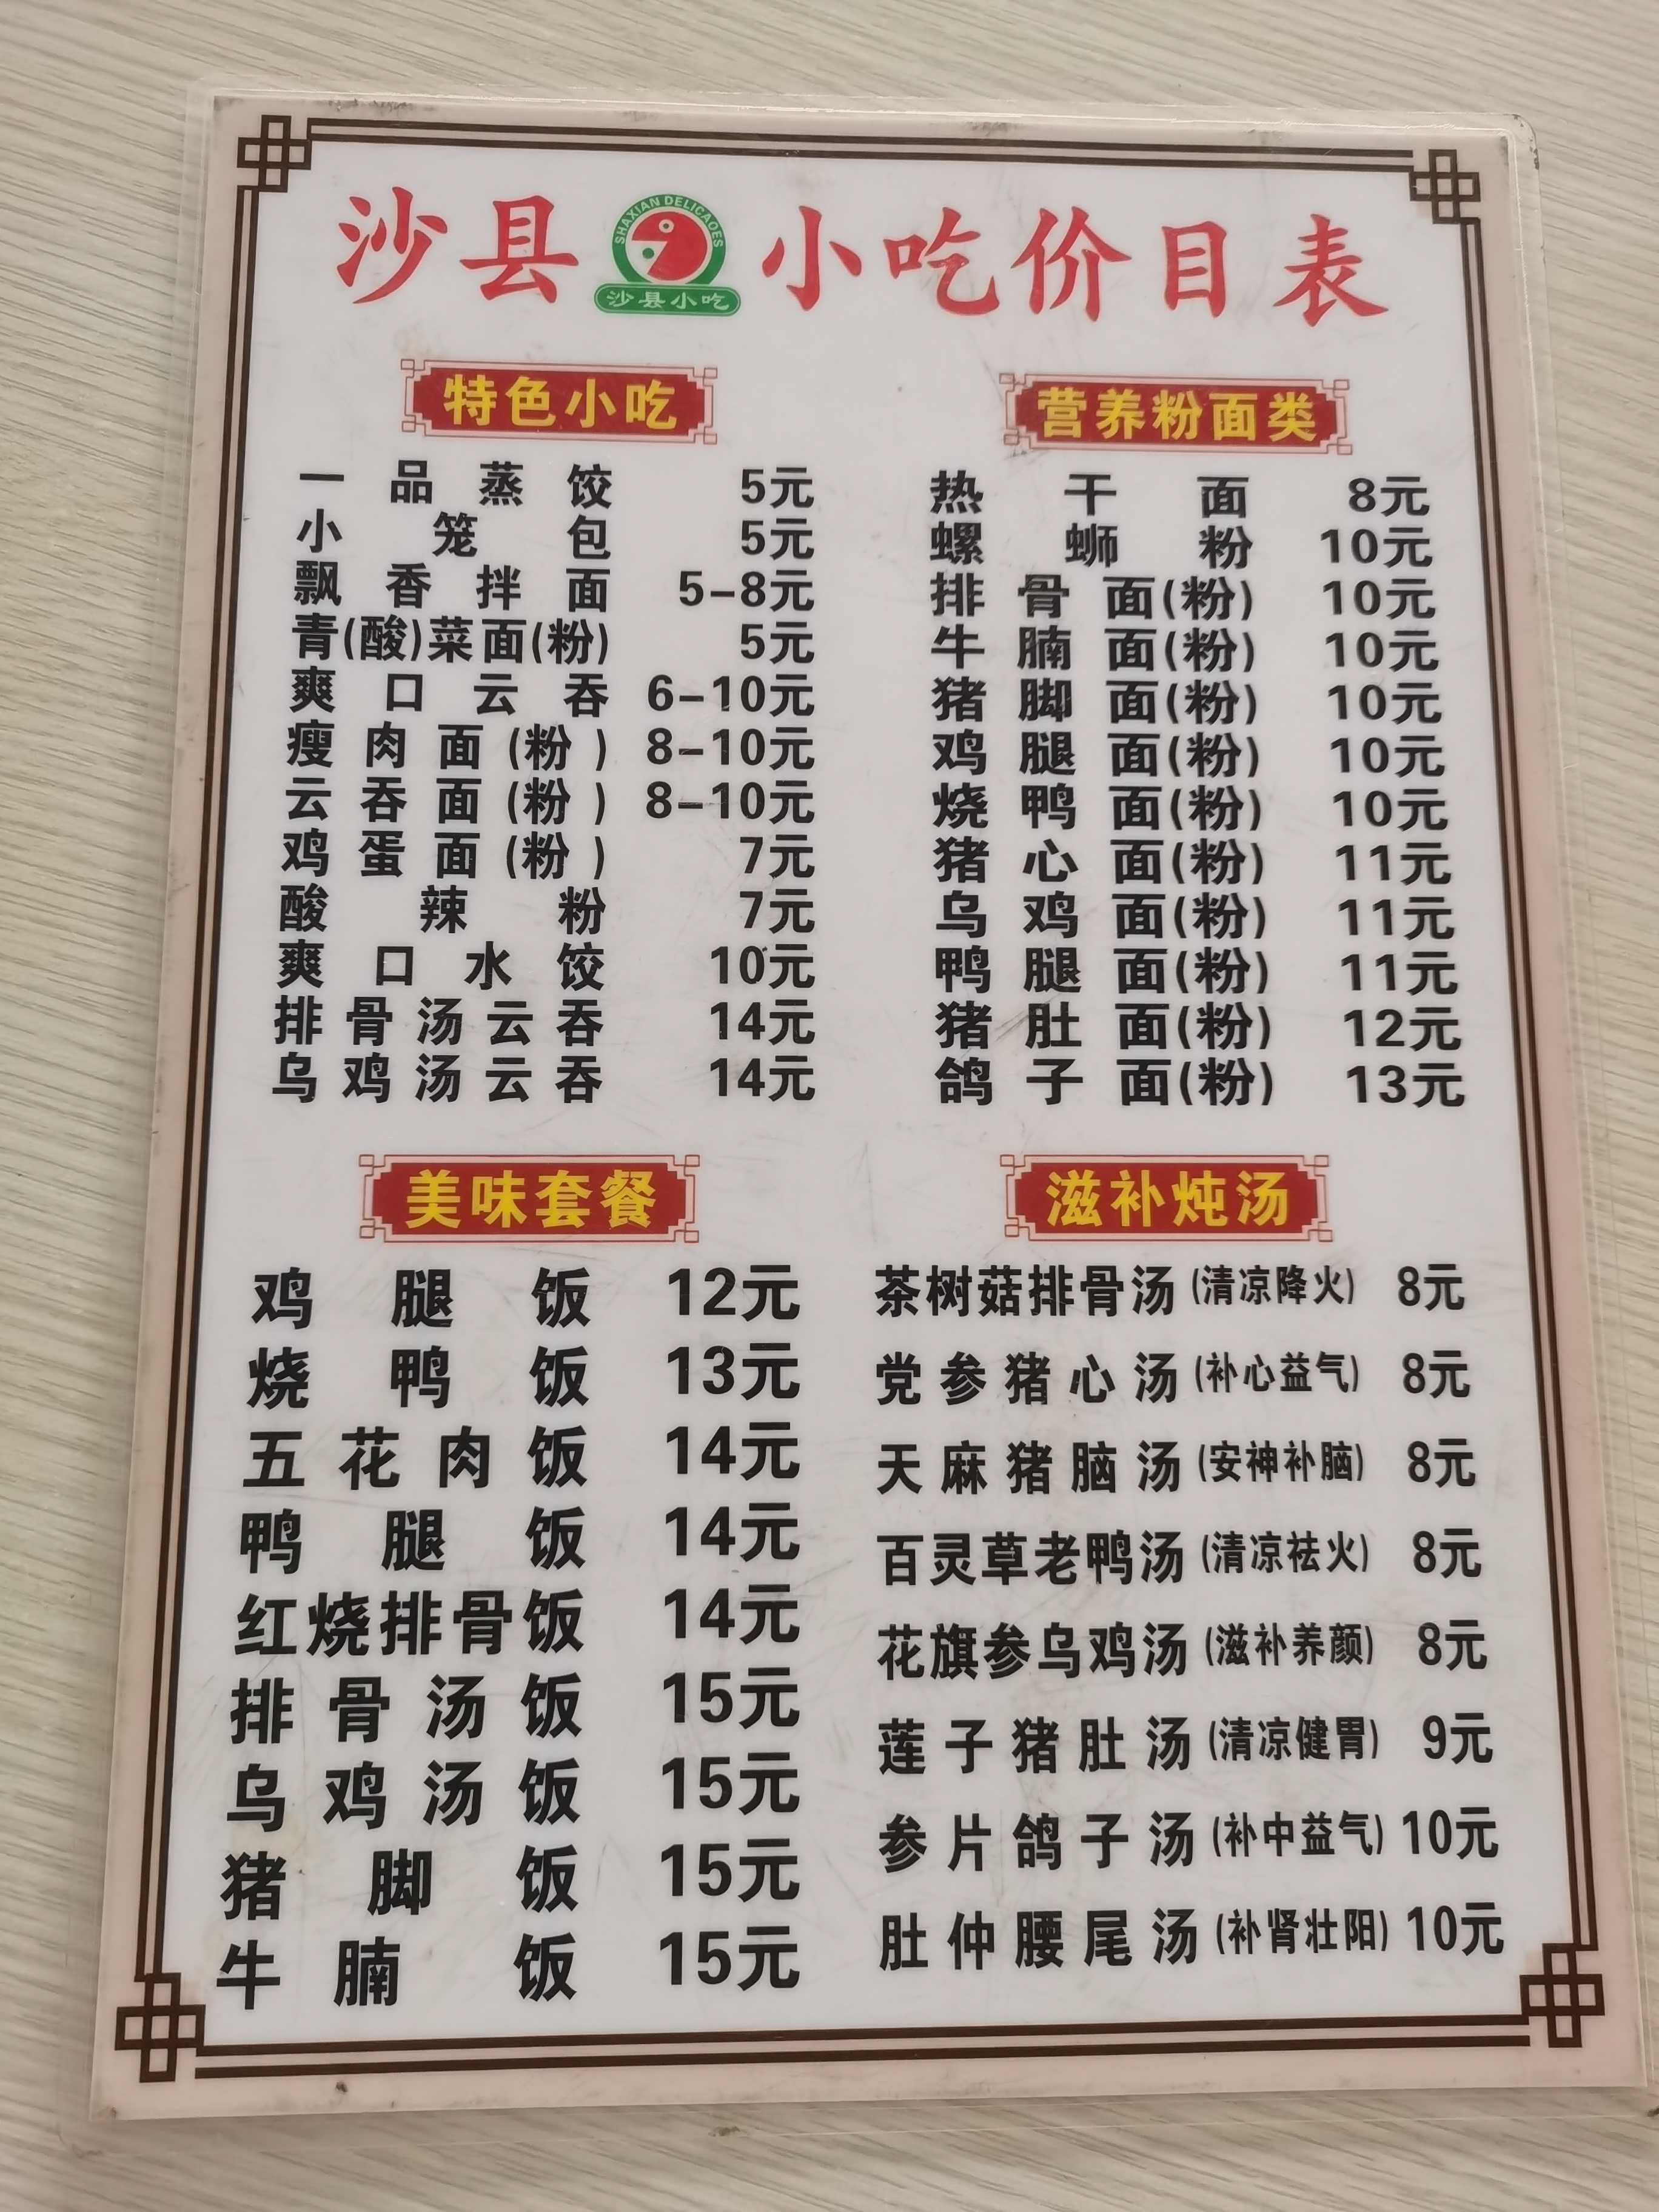 沙县 小吃价目表
SHAXIAN DELICAOES
沙县小吃
特色小吃
一品蒸饺 5元
小笼包 5元
飘香拌面 5-8元
青(酸)菜面(粉) 5元
爽口云吞 6-10元
瘦肉面(粉) 8-10元
云吞面(粉) 8-10元
鸡蛋面(粉) 7元
酸辣粉 7元
爽口水饺 10元
排骨汤云吞 14元
乌鸡汤云吞 14元
营养粉面类
热干面 8元
螺蛳粉 10元
排骨面(粉) 10元
牛腩面(粉) 10元
猪脚面(粉) 10元
鸡腿面(粉) 10元
烧鸭面(粉) 10元
猪心面(粉) 11元
乌鸡面(粉) 11元
鸭腿面(粉) 11元
猪肚面(粉) 12元
鸽子面(粉) 13元
美味套餐
鸡腿饭 12元
烧鸭饭 13元
五花肉饭 14元
鸭腿饭 14元
红烧排骨饭 14元
排骨汤饭 15元
乌鸡汤饭 15元
猪脚饭 15元
牛腩饭 15元
滋补炖汤
茶树菇排骨汤(清凉降火) 8元
党参猪心汤(补心益气) 8元
天麻猪脑汤(安神补脑) 8元
百灵草老鸭汤(清凉祛火) 8元
花旗参乌鸡汤(滋补养颜) 8元
莲子猪肚汤(清凉健胃) 9元
参片鸽子汤(补中益气) 10元
肚仲腰尾汤(补肾壮阳) 10元